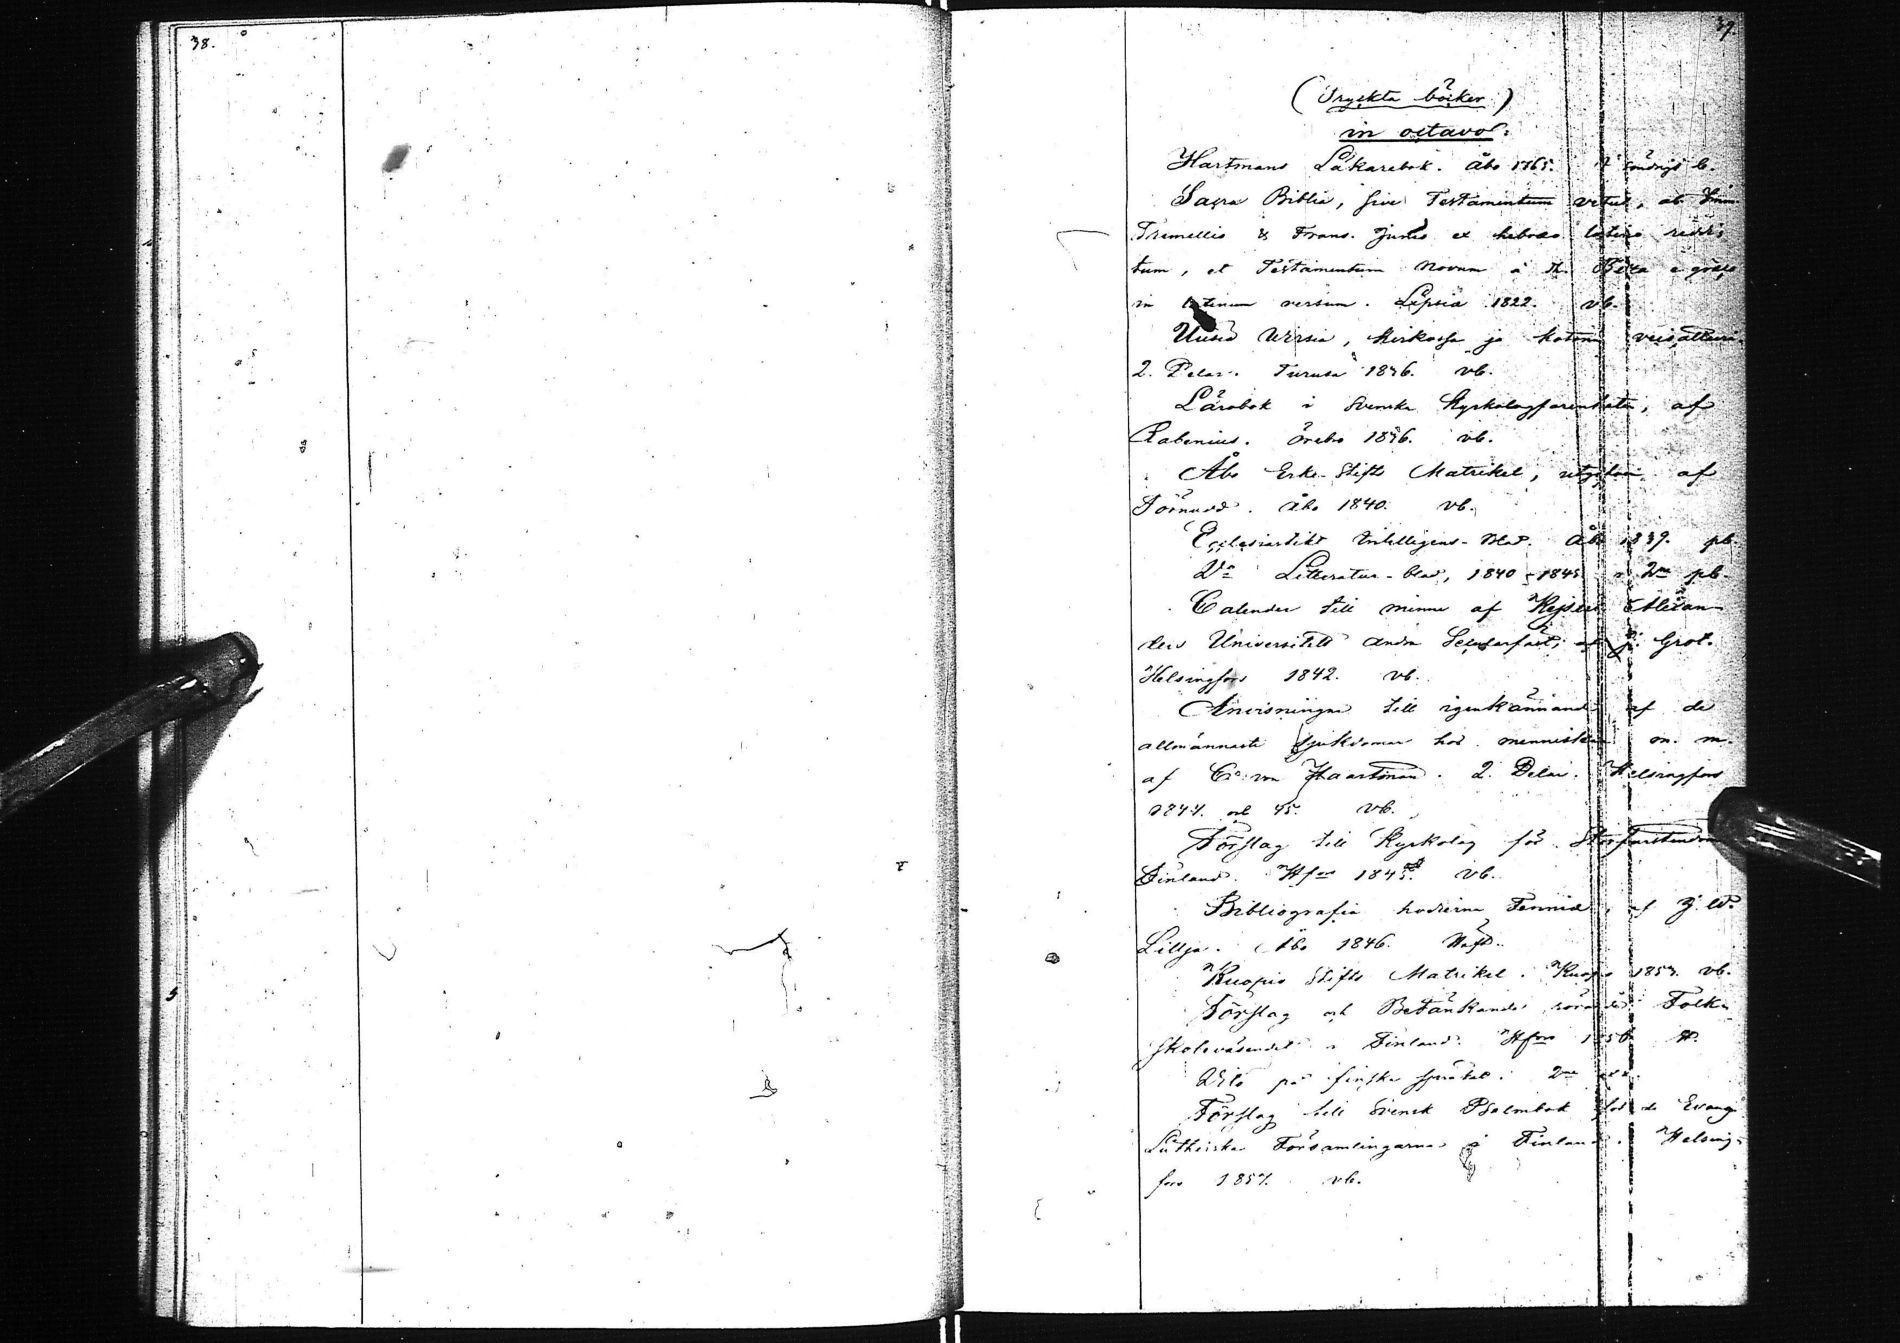 38.
39.
(Tryckta böcker.)
in octavo.
Hartmans Läkarebok. Åbo 1765. söndrigt b.
Sacra Biblia, sive Testamentum vetus, ab Im.
Tremellio & Franc. Junio ex hebræo latine reddi-
tum, et Testamentum Novum a Th. Beza e græco
in latinum versum. Lipsia 1822. vb.
Uusia Wirsiä, kirkossa ja kotona veisattavi.
2. Delar. Turusa 1836. vb.
Lärobok i Svenska Kyrkolagfarenheten, af
Rabenius. Örebro 1836. vb.
Åbo Erke-Stifts Matrikel, utgifven af
Törnudd. Åbo 1840. vb.
Ecclesiastikt Intelligens-Blad. Åbo 1839. pb.
Do Litteratur-blad, 1840-1845 pb.
Calender till minne af Kejserl. Alexan-
ders Universitets andra Secularfäst, af J. Grot.
Helsingfors 1842. vb.
Anvisningar till igenkännande af de
allmännaste sjukdomar hos menniskan m. m.
af C. von Haartman. 2. Delar. Helsingfors
1844. och 45. vb.
Förslag till Kyrkolag för Storfurstendömet
Finland. Hfors 1845. vb.
Bibliografia hodierna Fennia, af J. W.
Lillja. Åbo 1846. Häft.
Kuopio Stifts Matrikel. Kuopio vb.
Förslag och Betänkande rörande Folk-
skoleväsendet i Finland. Hfors
Dito på finska språket.
Förslag till Svensk Psalmbok för de Evang.
Lutherska Församlingarna i Finland. Helsing-
fors 1857. vb.